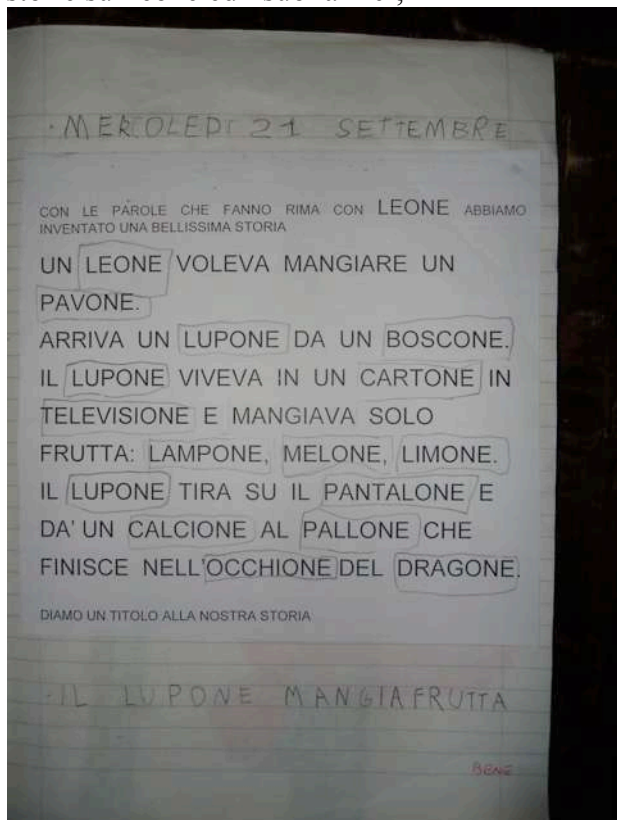 · MERCOLEDÌ 21 SETTEMBRE
CON LE PAROLE CHE FANNO RIMA CON LEONE ABBIAMO
INVENTATO UNA BELLISSIMA STORIA
UN LEONE VOLEVA MANGIARE UN
PAVONE.
ARRIVA UN LUPONE DA UN BOSCONE.
IL LUPONE VIVEVA IN UN CARTONE IN
TELEVISIONE E MANGIAVA SOLO
FRUTTA: LAMPONE, MELONE, LIMONE.
IL LUPONE TIRA SU IL PANTALONE E
DA' UN CALCIONE AL PALLONE CHE
FINISCE NELL'OCCHIONE DEL DRAGONE.
DIAMO UN TITOLO ALLA NOSTRA STORIA
· IL LUPONE MANGIAFRUTTA
BENE